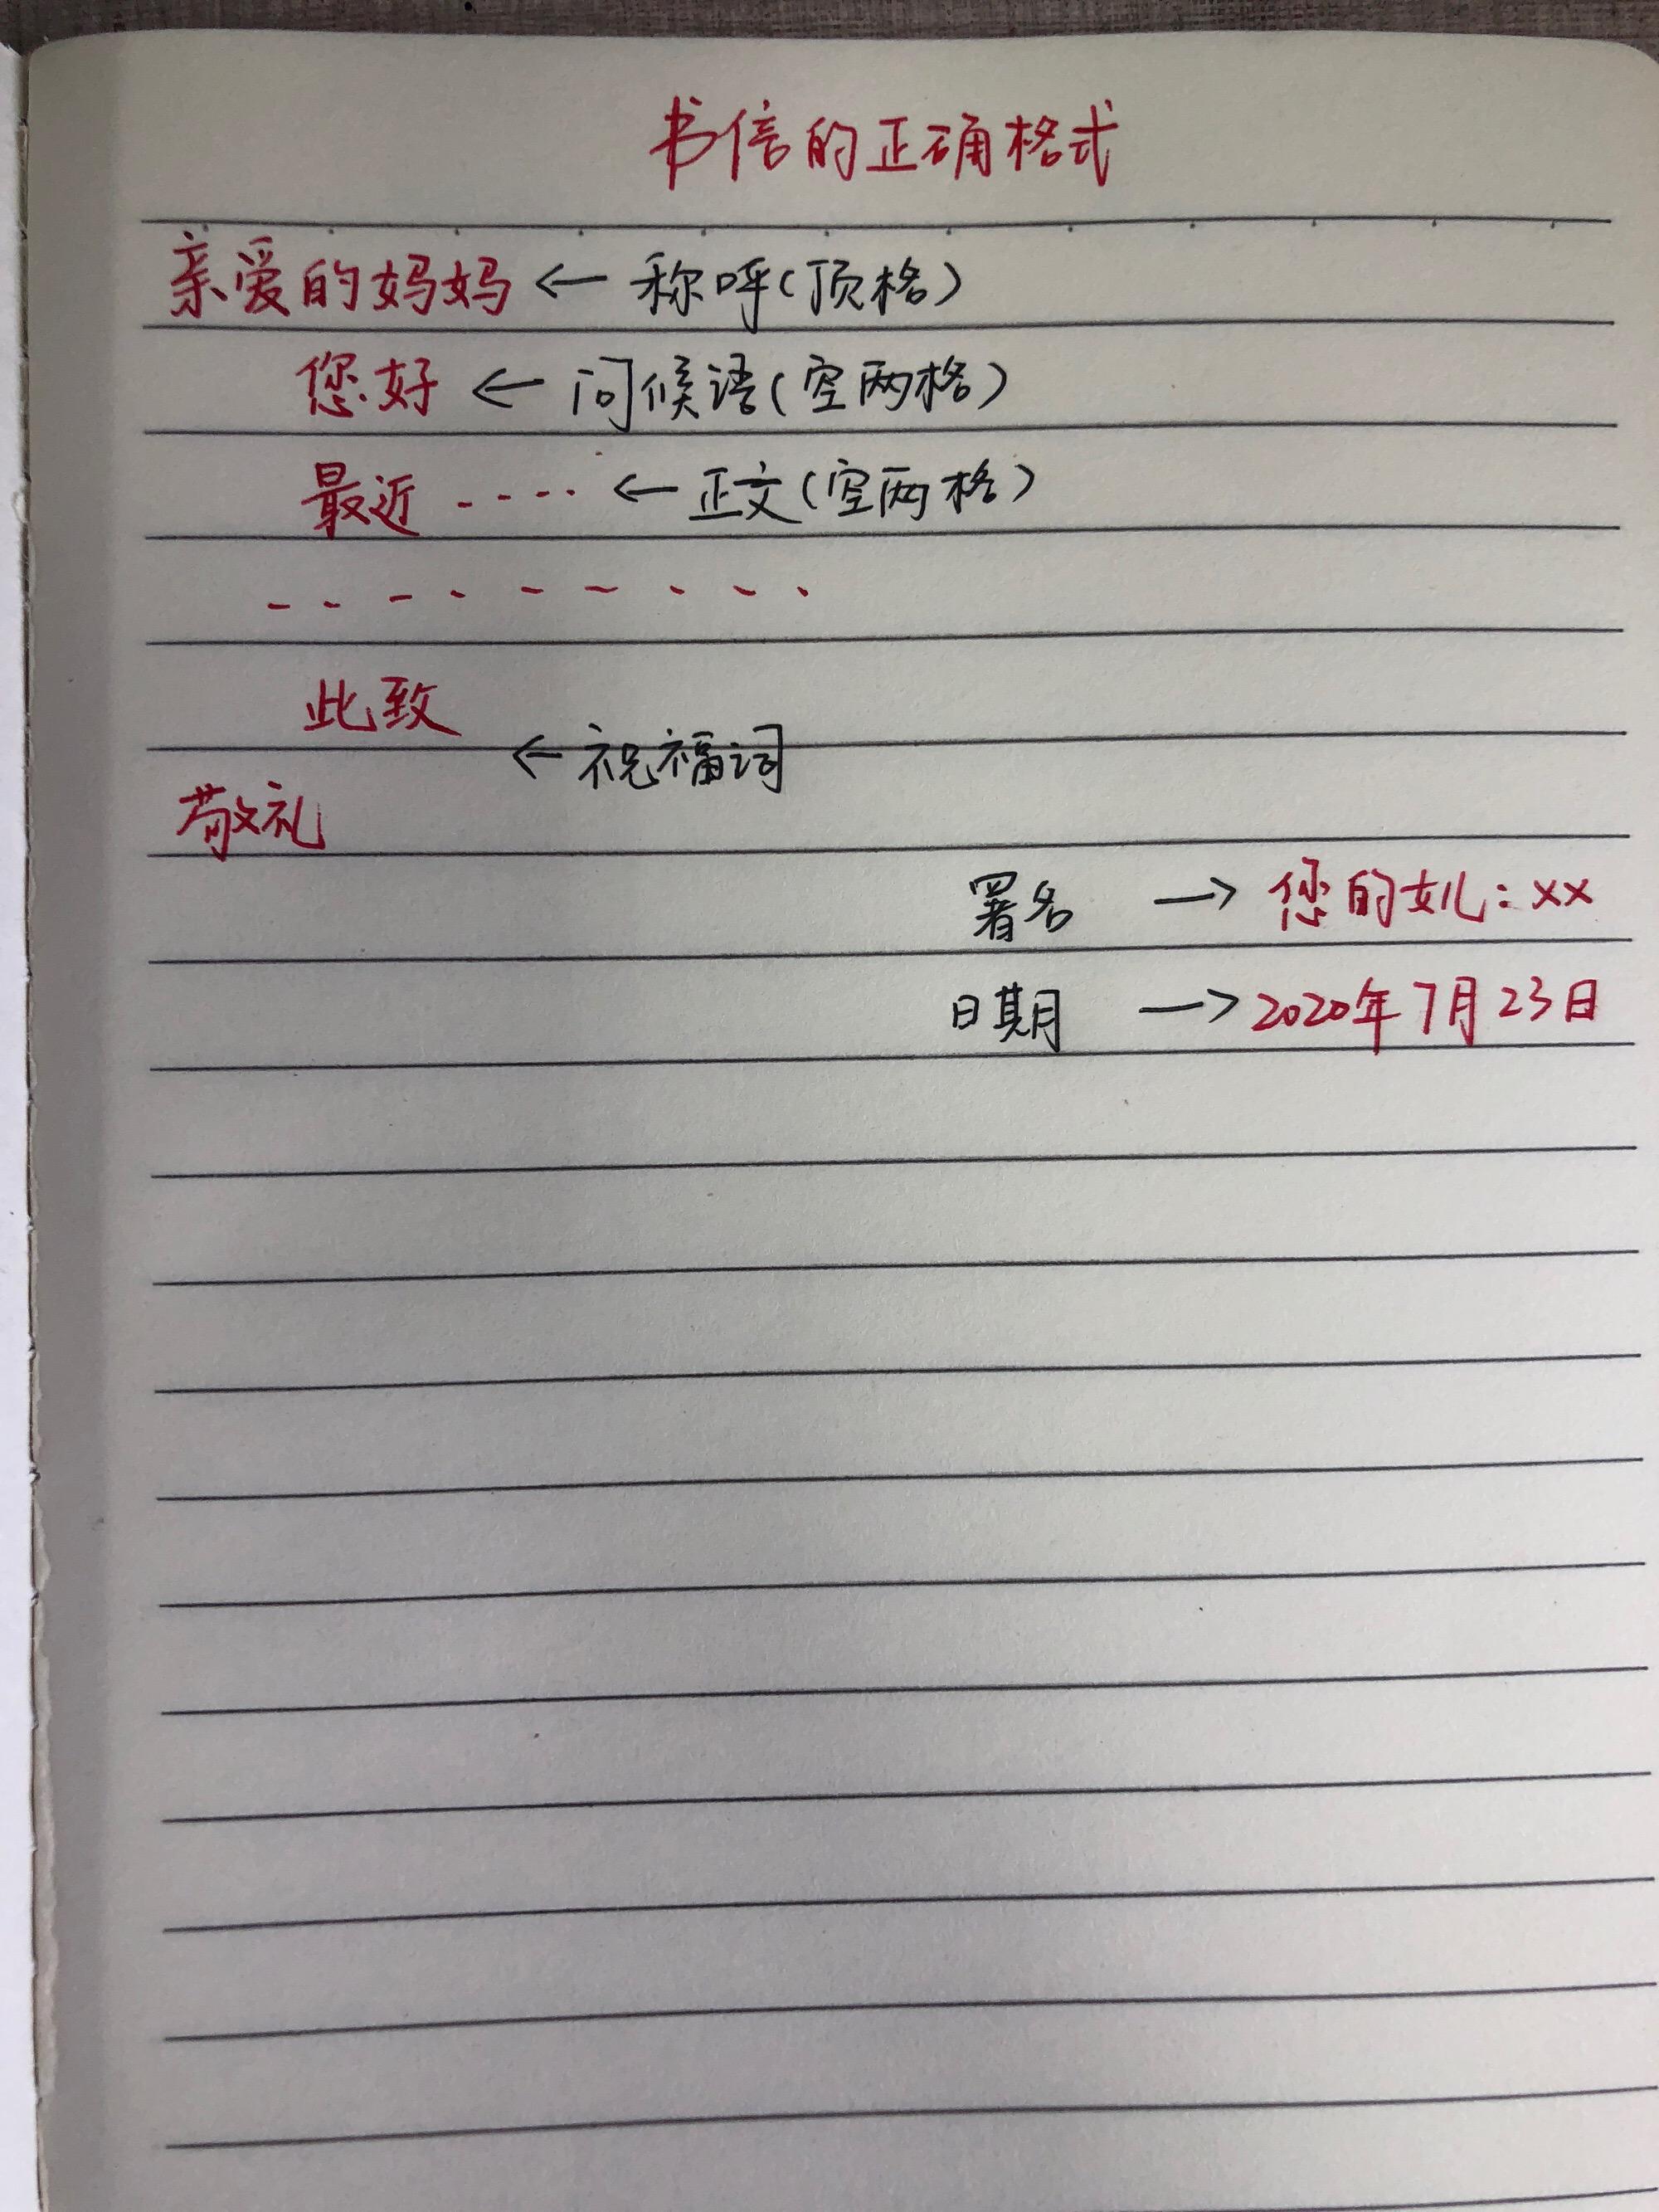 书信的正确格式
亲爱的妈妈 ← 称呼(顶格)
您好 ← 问候语(空两格)
最近 ····· ← 正文(空两格)
- - - - - - - - -
此致
← 祝福词
敬礼
署名 → 您的女儿:xx
日期 → 2020年7月23日